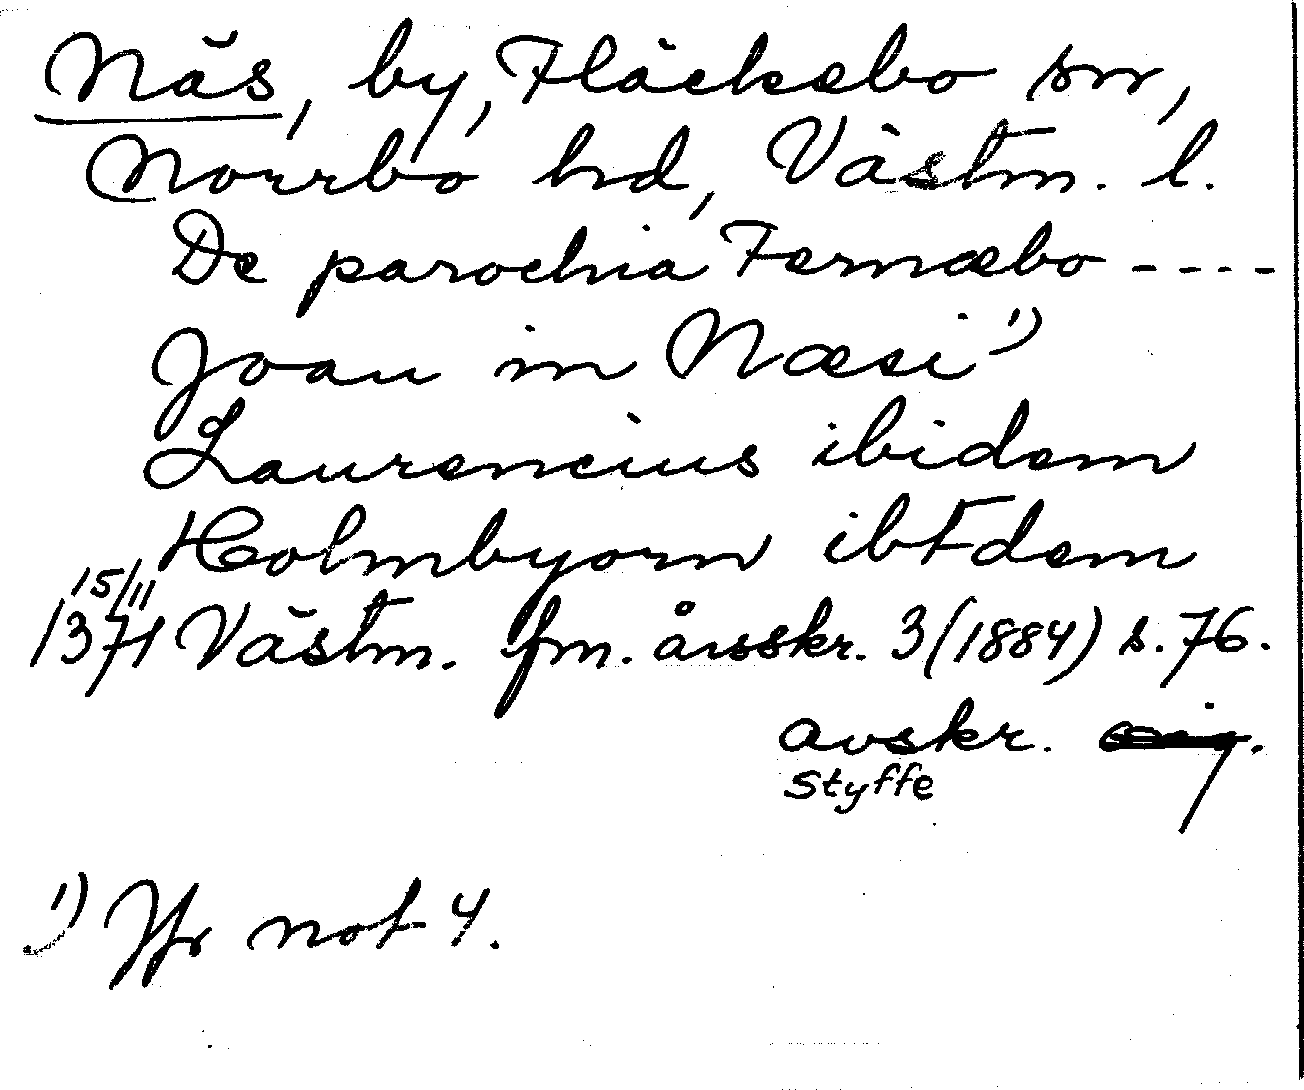 Näs, by, Fläckebo sn,
Norrbo hd, Västm. l.
De parochia Fernæbo ----
Joan in Næsi 1)
Laurencius ibidem
Holmbyorn ibidem
15/11
1371 Västm. fm. årsskr. 3 (1884) s. 76.
avskr.
Styffe
1) Jfr not 4.